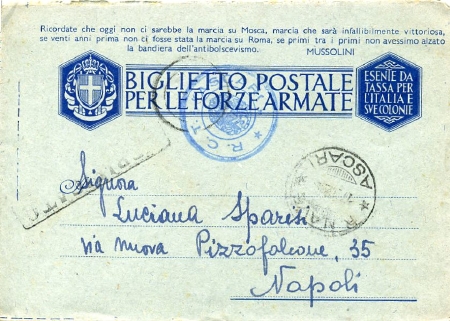 Ricordate che oggi non ci sarebbe la marcia su Mosca, marcia che sarà infallibilmente vittoriosa,
se venti anni prima non ci fosse stata la marcia su Roma, se primi tra i primi non avessimo alzato
la bandiera dell'antibolscevismo. MUSSOLINI
BIGLIETTO POSTALE
PER LE FORZE ARMATE
ESENTE DA
TASSA PER
L'ITALIA E
SVE COLONIE
* R. C. T.
ASCARI
Signora
Luciana Sparesi
via nuova Pizzofalcone, 35
Napoli